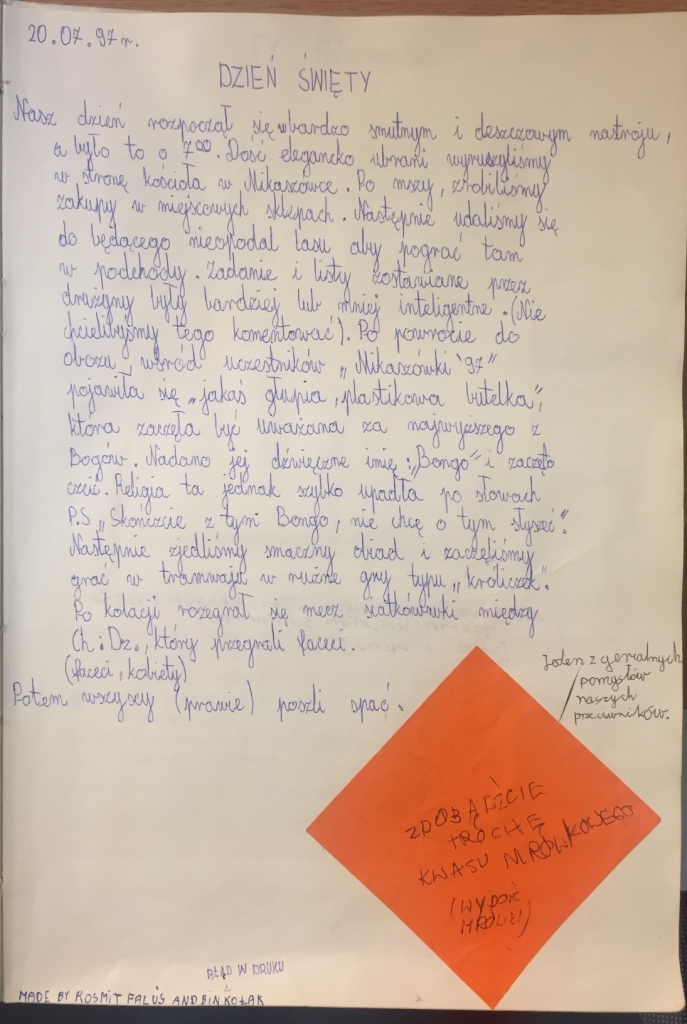 20.07.97r.
DZIEŃ ŚWIĘTY
Nasz dzień rozpoczął się w bardzo smutnym i deszczowym nastroju,
a było to o 7⁰⁰. Dość elegancko ubrani wyruszyliśmy
w stronę kościoła w Mikaszówce. Po mszy, zrobiliśmy
zakupy w miejscowych sklepach. Następnie udaliśmy się
do będącego nieopodal lasu aby pograć tam
w podchody. Zadanie i listy zostawiane przez
drużyny były bardziej lub mniej inteligentne. (Nie
chcielibyśmy tego komentować). Po powrocie do
obozu, wśród uczestników „Mikaszówki '97"
pojawiła się „jakaś głupia, plastikowa butelka",
która zaczęła być uważana za najwyższego z
Bogów. Nadano jej dźwięczne imię: „Bongo" i zaczęto
czcić. Religia ta jednak szybko upadła po słowach
P.S „Skończcie z tym Bongo, nie chcę o tym słyszeć".
Następnie zjedliśmy smaczny obiad i zaczęliśmy
grać w tramwaja w rużne gry typu „króliczek".
Po kolacji rozegrał się mecz siatkówki między
Ch : Dz., który przegrali faceci.
(faceci, kobiety)
Potem wszyscy (prawie) poszli spać.
Jeden z genialnych
pomysłów
naszych
przeciwników.
ZDOBĄDŹCIE
TROCHĘ
KWASU MRÓWKOWEGO
(WYDOIĆ
MRÓWKI)
BŁĄD W DRUKU
MADE BY ROSMIT FALUŚ AND BIN KOŁAK